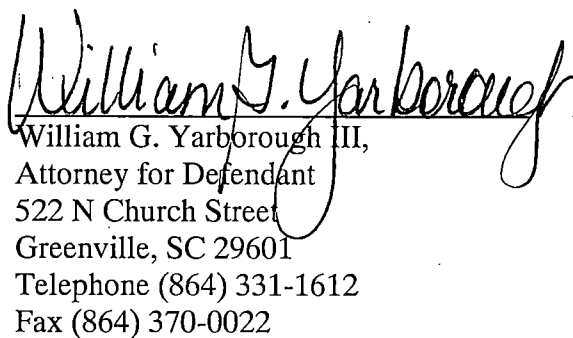 William G. Yarborough
William G. Yarborough III,
Attorney for Defendant
522 N Church Street
Greenville, SC 29601
Telephone (864) 331-1612
Fax (864) 370-0022